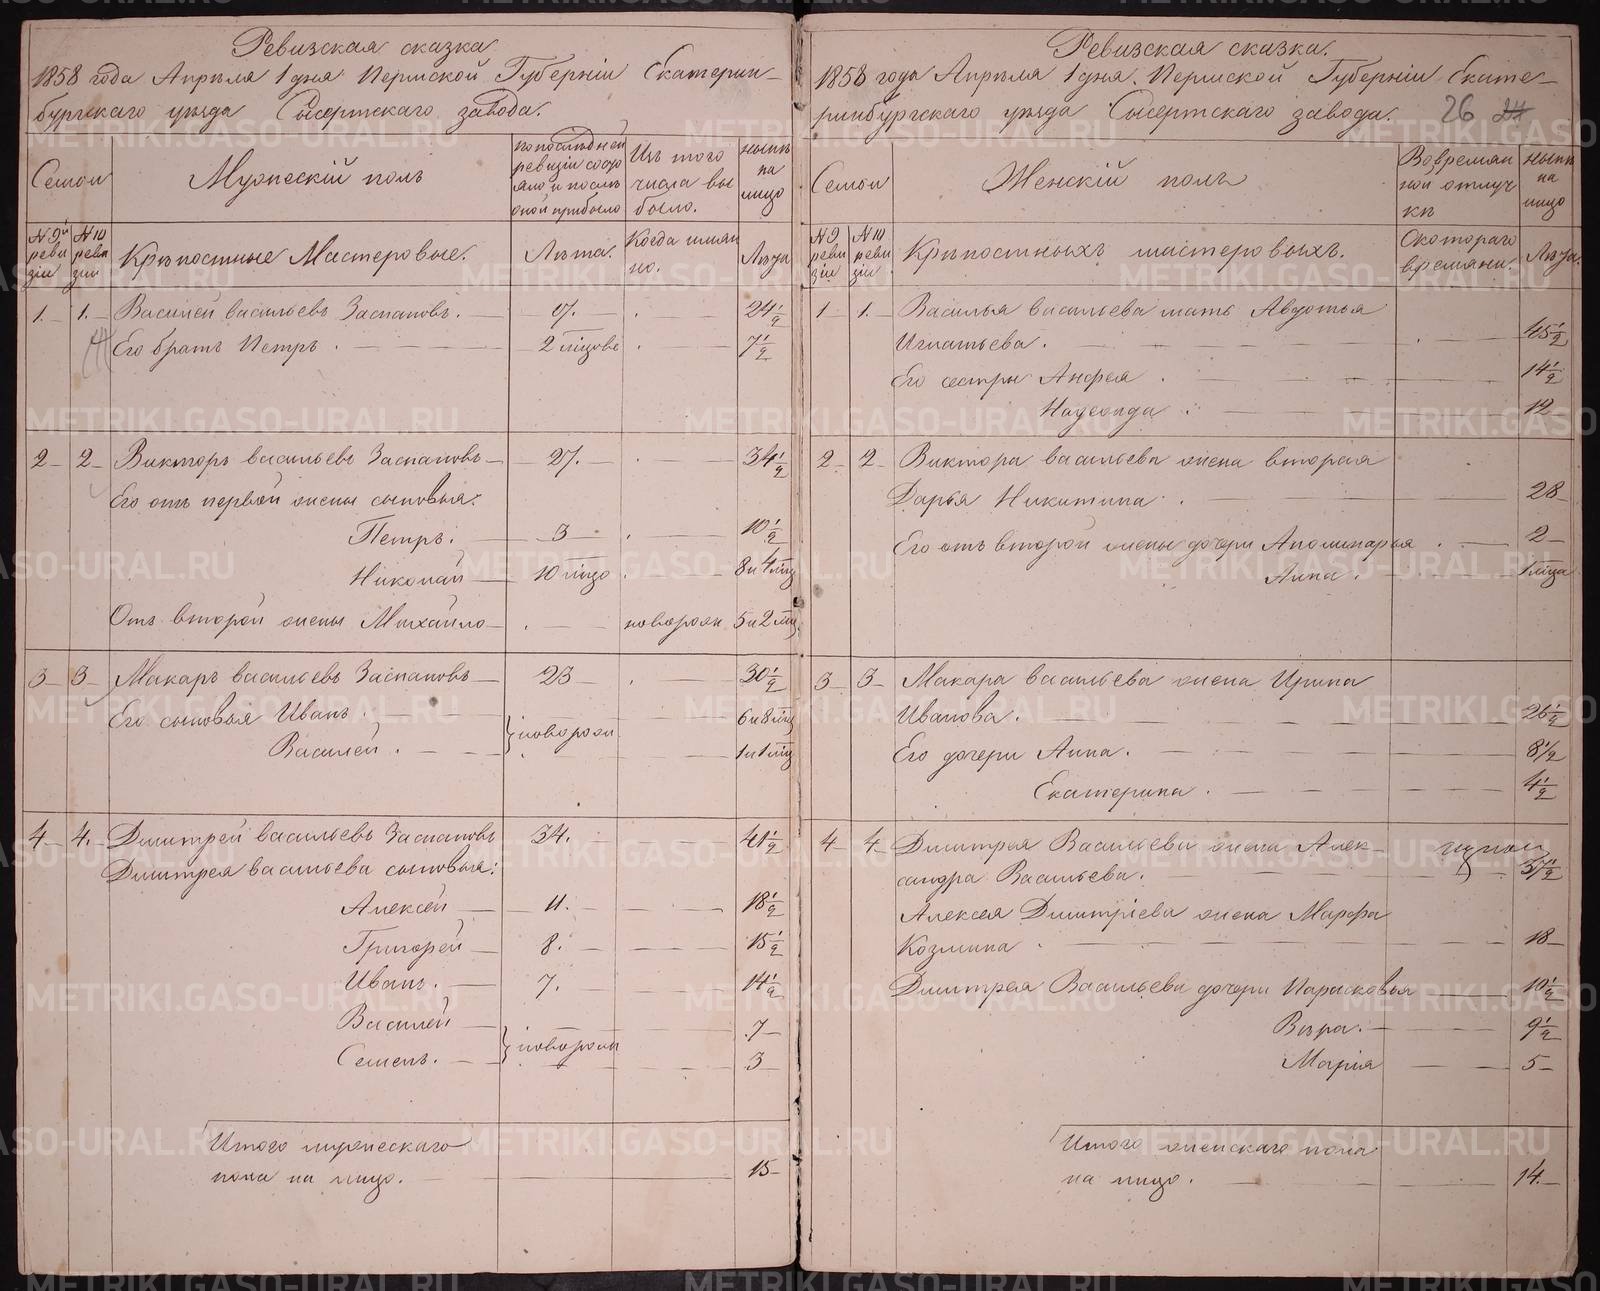 Ревизская сказка
1858 года Апрѣля 1 дня. Пермской Губерніи Екатерин-
бургскаго уѣзда Сысертскаго завода.
Семьи
Мужескій полъ
по последней ревизіи состояло и после оной прибыло
Изъ того числа выбыло.
ныне на лицо
№ 9й ревизіи
№ 10 ревизіи
Крѣпостные Мастеровые.
Лѣта.
Когда имянно.
Лѣта
1. 1. Василей васильевъ Заспановъ. 17. 24 1/2
Его братъ Петръ. 2 мѣсцовъ 7 1/2
2 2 Викторъ васильевъ Заспановъ 27. 34 1/2
Его отъ первой жены сыновья:
Петръ. 3 10 1/2
Николай 10 мѣсцо 8 и 4 мѣц
Отъ второй жены Михайло новорож 5 и 2 мѣц
3 3 Макаръ васильевъ Заспановъ 23 30 1/2
Его сыновья Иванъ. новорож 6 и 8 мѣц
Василей. 1 и 1 мѣц
4 4. Дмитрей васильевъ Заспановъ 34. 41 1/2
Дмитрея васильева сыновья:
Алексей 11. 18 1/2
Григорей 8. 15 1/2
Иванъ. 7. 14 1/2
Василей новорож 7
Семенъ. 3
Итого мужескаго
пола на лицо. 15
Ревизская сказка.
1858 года Апрѣля 1 дня. Пермской Губерніи Екате-
ринбургскаго уѣзда Сысертскаго завода. 26 24
Семьи
Женскій полъ
Во времянной отлучкѣ
ныне на лицо
№ 9 ревизіи
№ 10 ревизіи
Крѣпостныхъ мастеровыхъ.
Съ котораго времяни.
Лѣта.
1 1. Василья васильева мать Авдотья
Игнатьева. 45 1/2
Его сестры Анфея. 14 1/2
Надежда. 12
2 2 Виктора васильева жена вторая
Дарья Никитина. 28
Его отъ второй жены дочери Аполинарья. 2
Анна. 1 мѣца
3 3 Макара васильева жена Ирина
Иванова. 26 1/2
Его дочери Анна. 8 1/2
Екатерина. 4 1/2
4 4 Дмитрья Васильева жена Алек-
сандра Васильева. 37 1/2
Алексея Дмитріева жена Марфа
Козмина. 18
Дмитрея Васильева дочери Парасковья 10 1/2
Вѣра. 9 1/2
Марія 5
Итого женскаго пола
на лицо. 14.
METRIKI.GASO-URAL.RU